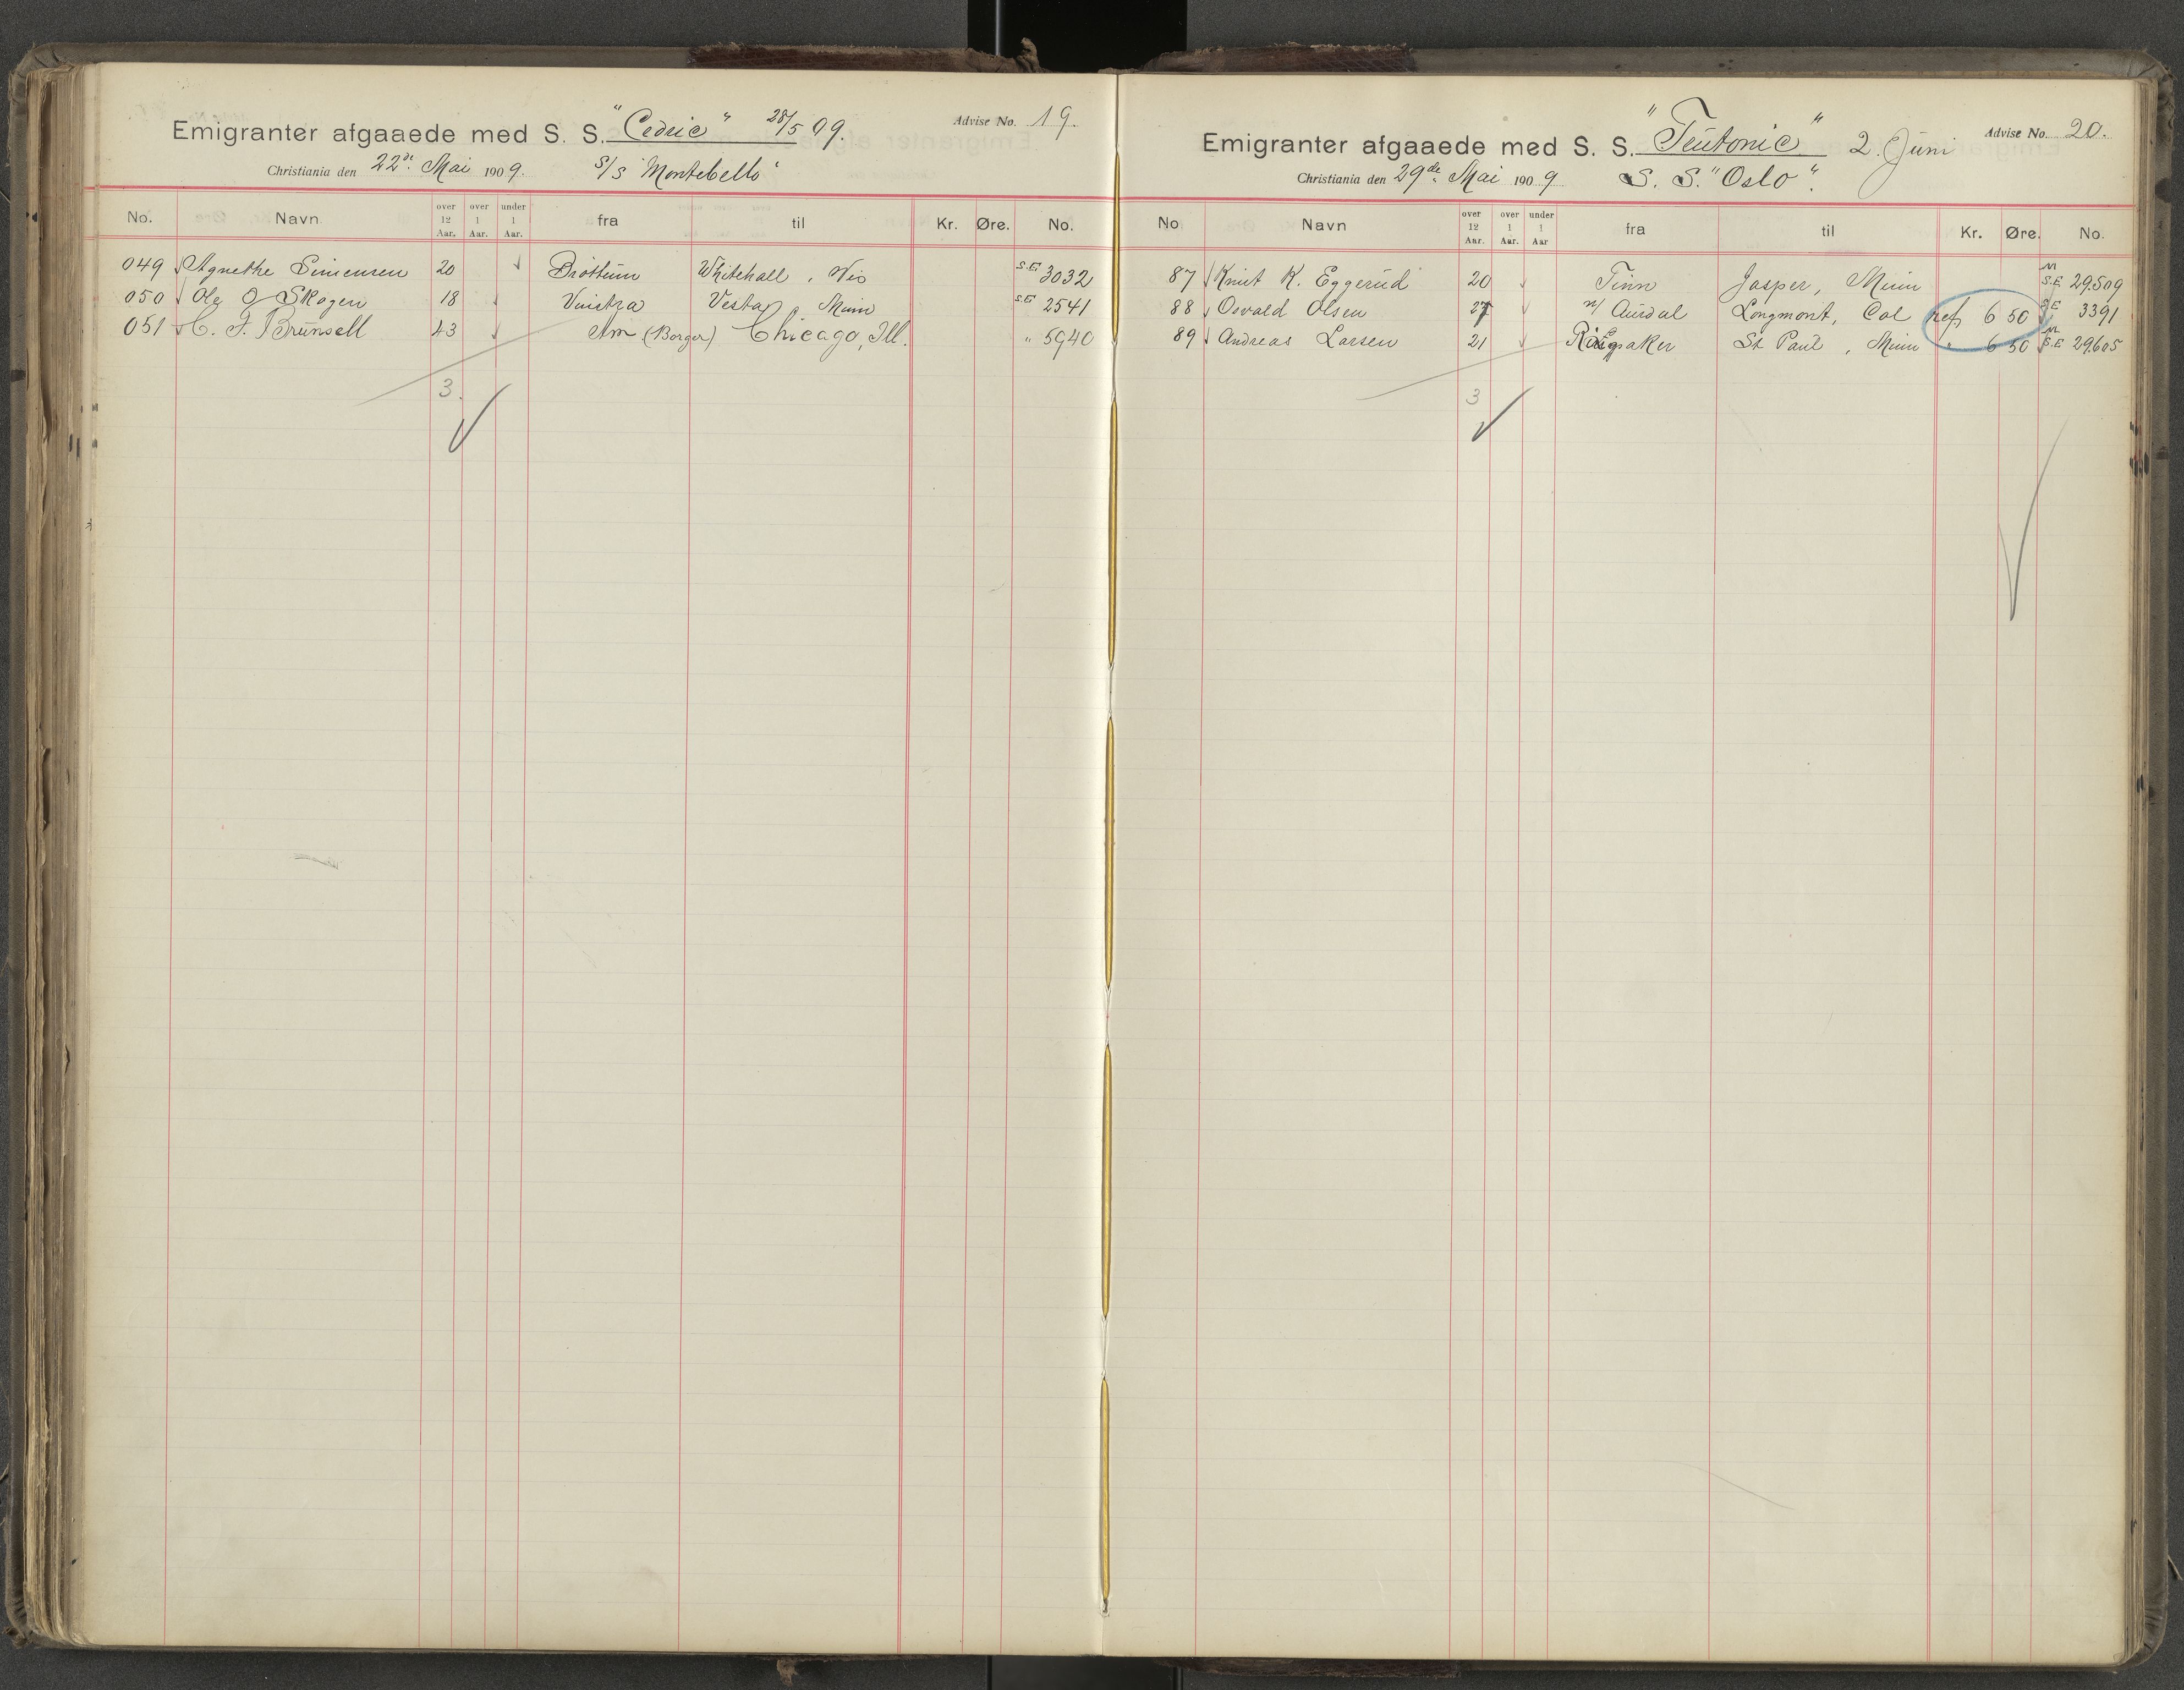 Emigranter afgaaede med S. S. "Cedric" 28/5 09. Advise No. 19.
Christiania den 22de Mai 1909. S/S "Montebello"
No. Navn over 12 Aar. over 1 Aar. under 1 Aar. fra til Kr. Øre. No.
049 Agnethe Simensen 20 Brøttum Whitehall, Wis S.E 3032
050 Ole O Skogen 18 Vinstra Vesta, Minn S.E 2541
051 C. F. Brunsell 43 Am. (Borger) Chicago, Ill. " 5940
3.
Emigranter afgaaede med S. S. "Teutonic" 2. Juni Advise No. 20.
Christiania den 29de Mai 1909 S. S. "Oslo".
No Navn over 12 Aar. over 1 Aar. under 1 Aar fra til Kr. Øre. No.
87 Knut K. Eggerud 20 Tinn Jasper, Minn M S.E 29509
88 Osvald Olsen 27 n/ Aurdal Longmont, Col ref 6 50 S.E 3391
89 Andreas Larsen 21 Ringsaker St Paul, Minn " 6 50 M S.E 29605
3